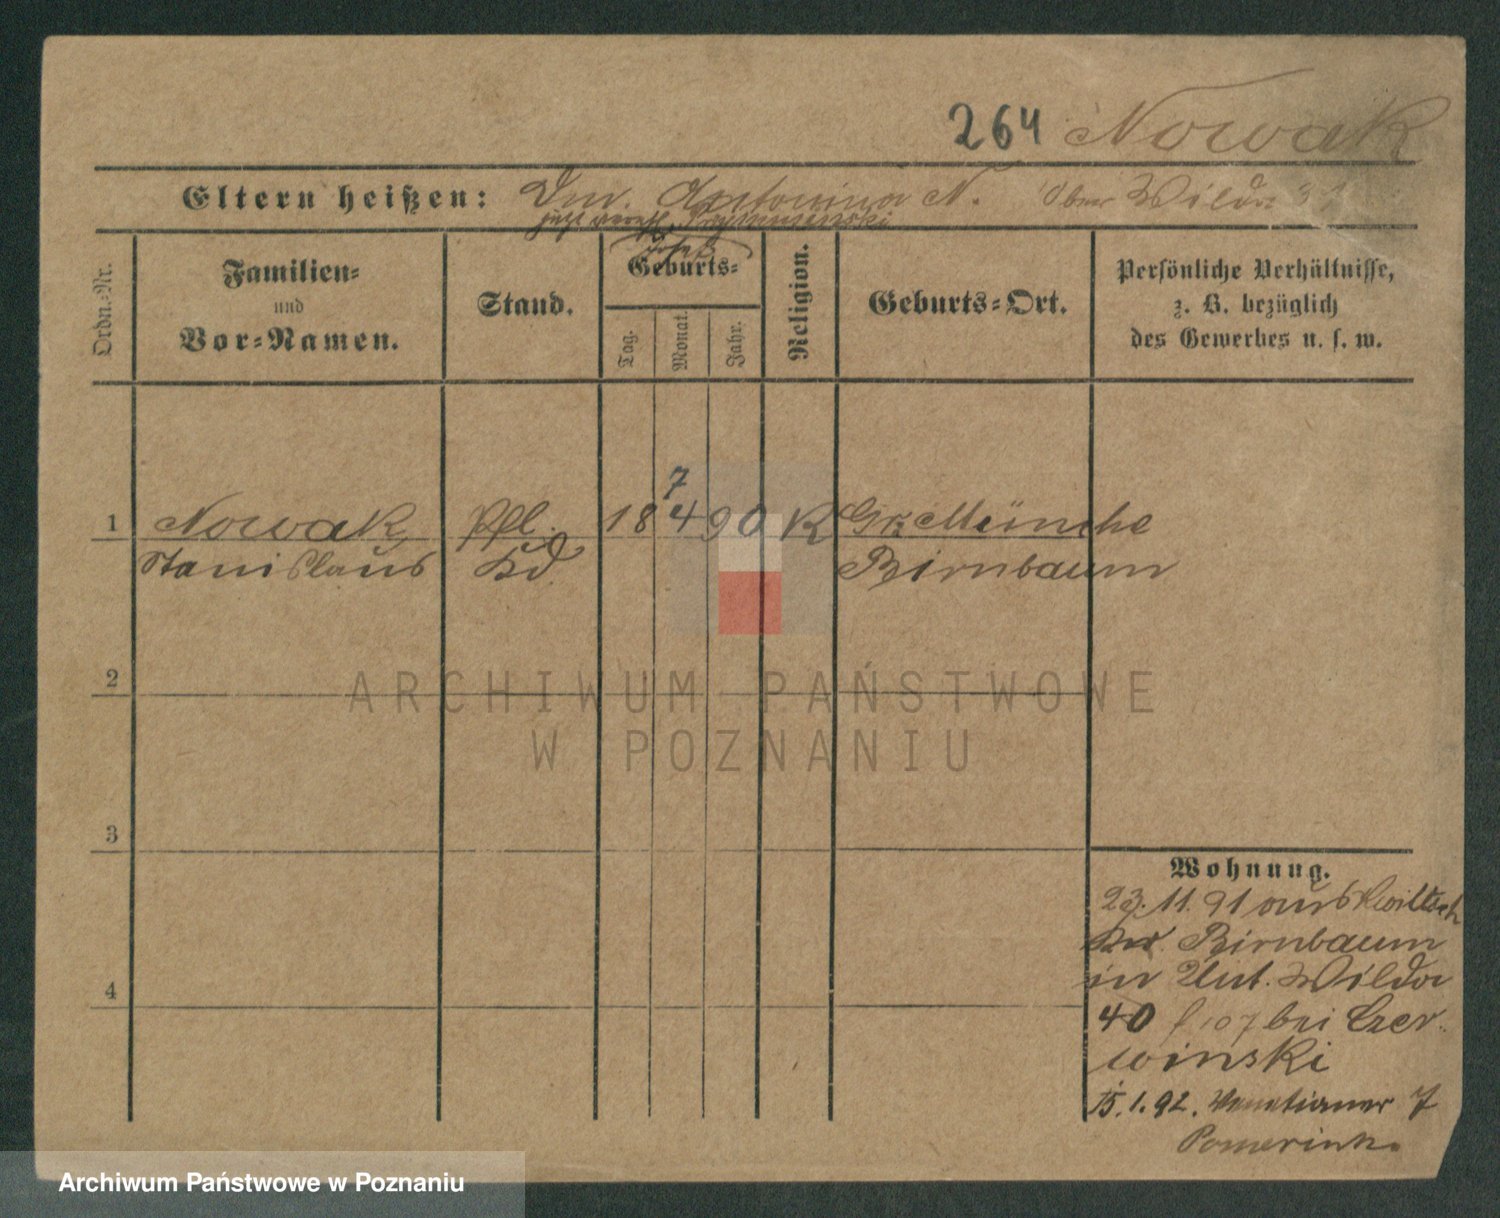 264 Nowak
Eltern heißen: Antonina N. Ober Wilda 31
jetzt
Josef
Ordn.-Nr.
Familien-
und
Vor-Namen.
Stand.
Geburts-
Tag.
Monat.
Jahr.
Religion.
Geburts-Ort.
Persönliche Verhältnisse,
z. B. bezüglich
des Gewerbes u. s. w.
7
1 Nowak Pfl. 18 4 90 K Gr. Münche
Stanislaus Kd. Birnbaum
2
3
4
Wohnung.
23. 11. 91 aus Kwiltsch
Kr. Birnbaum
in Unt. Wilda
40 f 107 bei Czer-
winski
15. 1. 92. Venetianer 7
ARCHIWUM PAŃSTWOWE
W POZNANIU
Archiwum Państwowe w Poznaniu